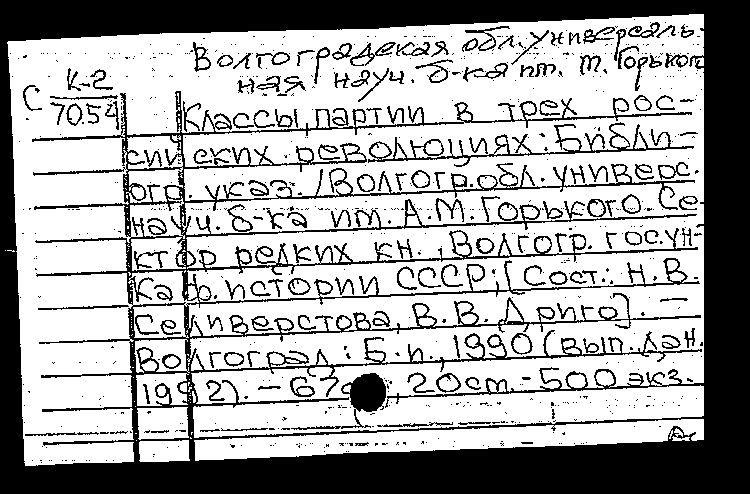 Волгоградская обл. универсаль-
ная науч. б-ка им. М. Горького
К-2
С
7054
Классы, партии в трех рос-
сийских революциях: Библи-
огр. указ. / Волгогр. обл. универс.
науч. б-ка им. А.М. Горького. Се-
ктор редких кн., Волгогр. гос. ун-
Каф. истории СССР; [Сост.: Н.В.
Селиверстова, В.В. Дриго]. —
Волгоград: Б.и., 1990 (вып. дан.
1992). - 67с.; 20см. - 500 экз.